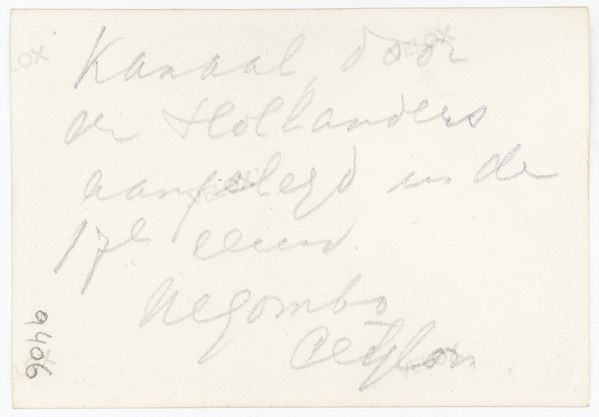 Kanaal, door
de Hollanders
aangelegd in de
17e eeuw.
Negombo
Ceylon.
9406